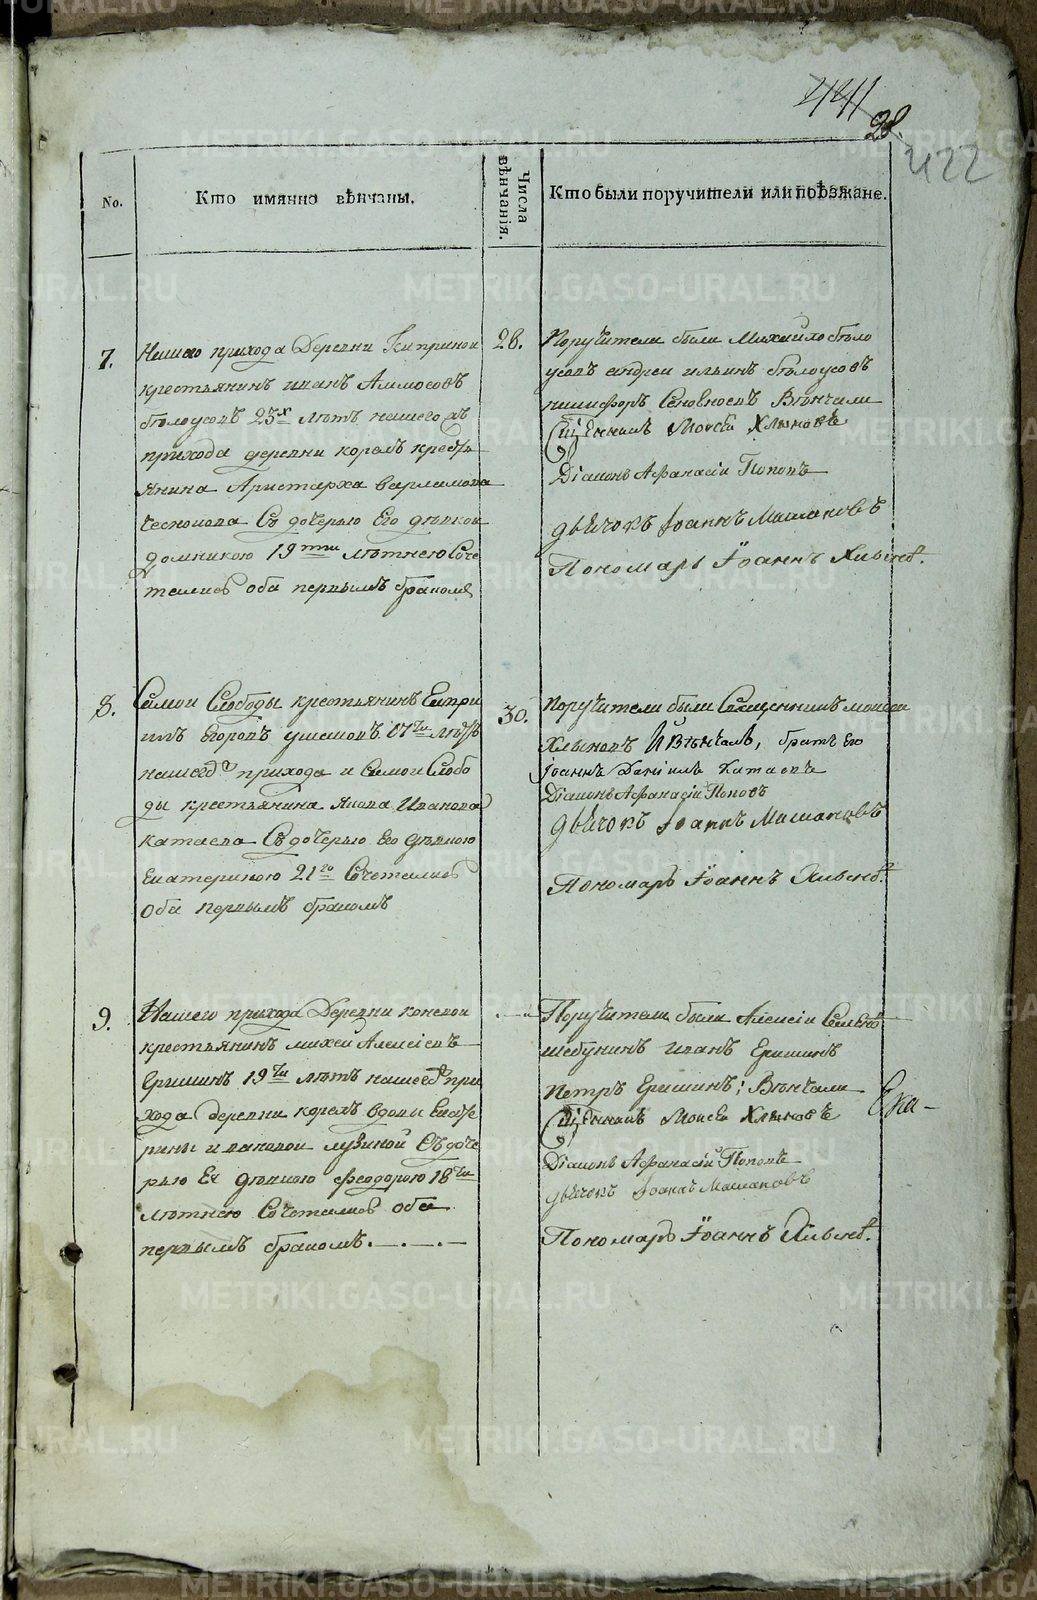 441
28.
422
No.
Кто имянно вѣнчаны.
Числа вѣнчанія.
Кто были поручители или поѣзжане.
7.
Нашего прихода Деревни Киприной
крестьянинъ иванъ Аммосовъ
бѣлоусовъ 23х лѣтъ нашего жъ
прихода деревни корелъ крестъ
янина Аристарха варламова
Чеснокова Съ дочерью Его дѣвкой
домникою 19ти лѣтнею Соче
тались оба первымъ бракомъ
28.
Поручители были Михайло бѣло
усовъ андреи ильинъ бѣлоусовъ
Вѣнчали
Сщенникъ Моисей Хлыновъ
Діаконъ Афанасіи Поповъ
дьячокъ Іоаннъ Машановъ
Пономарь Іоаннъ
8.
Самои Слободы крестьянинъ Кипри
янъ Егоровъ 17ти лѣтъ
нашегожъ прихода и Самои Слобо
ды крестьянина Якова Иванова
катаева Съ дочерью Его дѣвкою
Екатериною 21го Сочетались
Оба первымъ бракомъ
30.
Поручители были Священникъ моисеи
Хлыновъ И Вѣнчалъ, братъ Его
Іоаннъ Даніилъ Катаевъ
Діаконъ Афанасіи Поповъ
дьячокъ Іоаннъ Машановъ
Пономарь Іоаннъ
9.
Нашего прихода Деревни коневои
крестьянинъ михеи Алексіевъ
Ершинъ 19ти лѣтъ нашегожъ при
хода Деревни корелъ вдовы Екате
рины ивановои лузиной Съ доче
рью Ея дѣвкою феодорою 18ти
лѣтнею Сочетались оба
первымъ бракомъ.
Поручители были Алексіи
шебунинъ иванъ Ершинъ
Петръ Ершинъ; Вѣнчали
Сщенникъ Моисей Хлыновъ
Діаконъ Афанасіи Поповъ
дьячокъ Іоаннъ Машановъ
Пономарь Іоаннъ
Ека-
METRIKI.GASO-URAL.RU